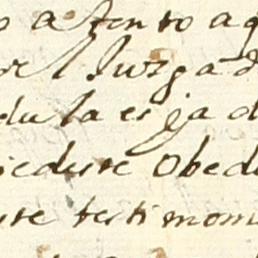 o atento aq
el Juzgad
dula es ja d
iedure Obed
ure testimon